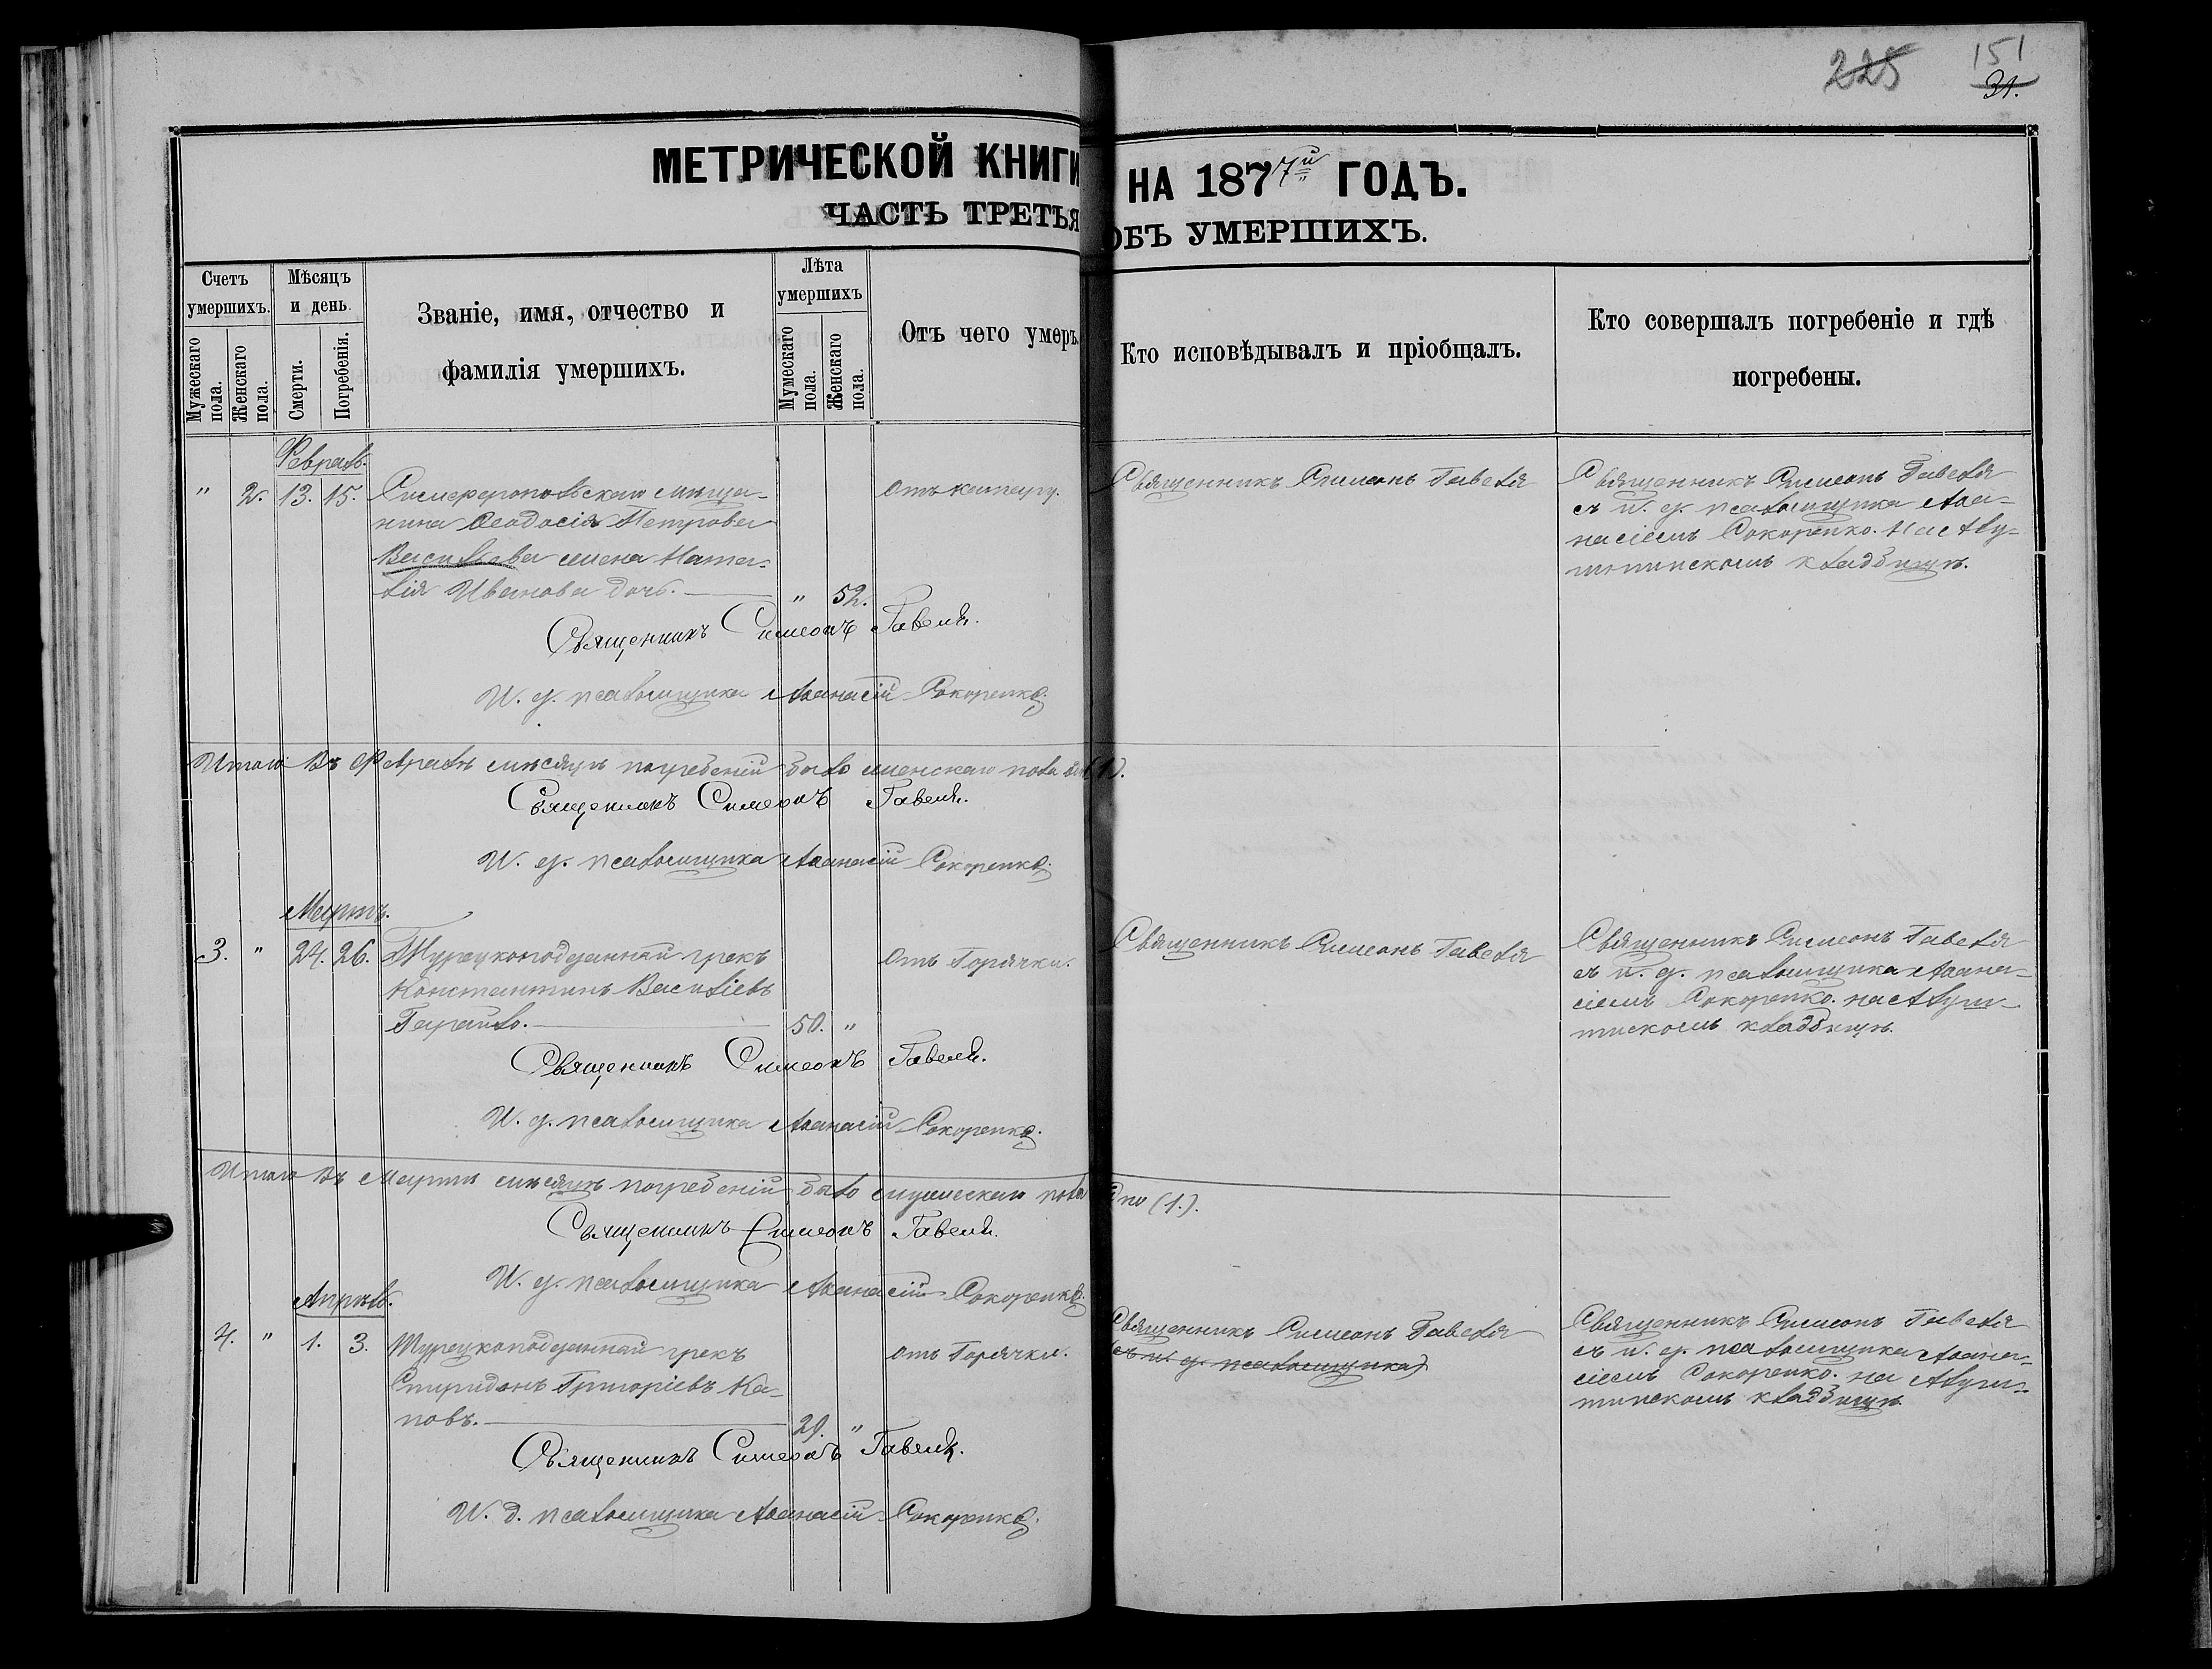 225 151
31.
МЕТРИЧЕСКОЙ КНИГИ НА 1877й ГОДЪ.
ЧАСТЬ ТРЕТЬЯ ОБЪ УМЕРШИХЪ.
Счетъ умершихъ.
Мужескаго пола.
Женскаго пола.
Мѣсяцъ и день.
Смерти.
Погребенія.
Званіе, имя, отчество и
фамилія умершихъ.
Лѣта умершихъ
Мумескаго пола.
Женскаго пола.
Отъ чего умеръ.
Кто исповѣдывалъ и пріобщалъ.
Кто совершалъ погребеніе и гдѣ
погребены.
Февраль.
" 2. 13. 15. Симферопольскаго мѣща-
нина Ѳеодосія Петрова
Васильева жена Ната-
лія Иванова дочь. " 52.
Отъ
Священникъ Симеонъ Гавеля
Священникъ Симеонъ Гавеля
съ и. д. псаломщика Аѳа-
насіемъ Сокоренко. На Алу-
штинскомъ кладбищѣ.
Священникъ Симеонъ Гавеля.
И. д. псаломщика Аѳанасій Сокоренко.
Итого Въ Февралѣ мѣсяцѣ погребеній было женскаго пола (1).
Священникъ Симеонъ Гавеля.
И. д. псаломщика Аѳанасій Сокоренко.
Мартъ.
3. " 24. 26. Турецкоподданный грекъ
Константинъ Василіевъ
50. "
Отъ Горячки.
Священникъ Симеонъ Гавеля
Священникъ Симеонъ Гавеля
съ и. д. псаломщика Аѳана-
сіемъ Сокоренко. на Алуш-
тискомъ кладбищѣ.
Священникъ Симеонъ Гавеля.
И. д. псаломщика Аѳанасій Сокоренко.
Итого Въ Мартѣ мѣсяцѣ погребеній было мужескаго пола одно (1.).
Священникъ Симеонъ Гавеля.
И. д. псаломщика Аѳанасій Сокоренко.
Апрѣль.
4. " 1. 3. Турецкоподданный грекъ
Спиридонъ Григоріевъ Ка-
повъ. 29. "
отъ Горячки.
Священникъ Симеонъ Гавеля
съ и. д. псаломщика)
Священникъ Симеонъ Гавеля
съ и. д. псаломщика Аѳана-
сіемъ Сокоренко. на Алуш-
тинскомъ кладбищѣ
Священникъ Симеонъ Гавеля.
И. д. псаломщика Аѳанасій Сокоренко.